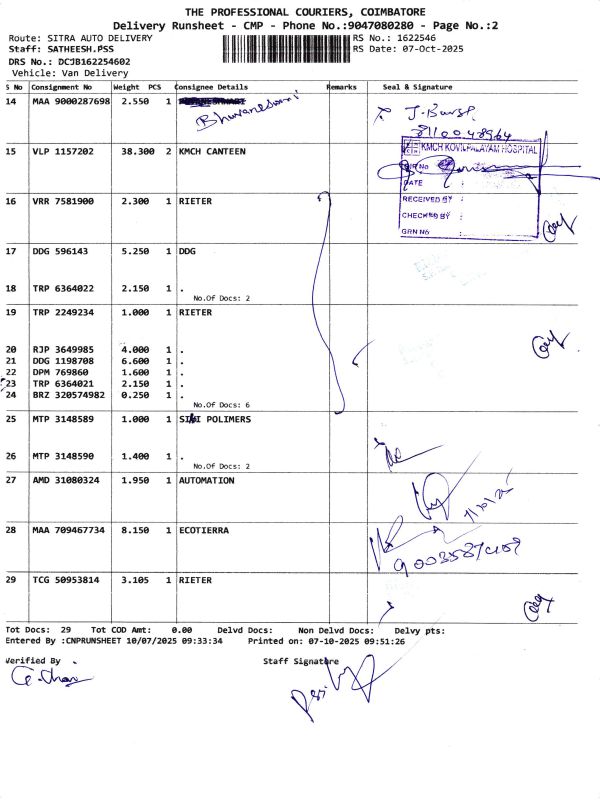 THE PROFESSIONAL COURIERS, COIMBATORE
Delivery Runsheet - CMP - Phone No.:9047080280 - Page No.:2
Route: SITRA AUTO DELIVERY
RS No.: 1622546
Staff: SATHEESH.PSS
RS Date: 07-Oct-2025
DRS No.: DCJB162254602
Vehicle: Van Delivery
S No Consignment No Weight PCS Consignee Details Remarks Seal & Signature
14 MAA 9000287698 2.550 1
Bhuvaneswari
15 VLP 1157202 38.300 2 KMCH CANTEEN
KMCH KOVILPALAYAM HOSPITAL
DATE :
RECEIVED BY :
CHECKED BY :
GRN No :
16 VRR 7581900 2.300 1 RIETER
17 DDG 596143 5.250 1 DDG
18 TRP 6364022 2.150 1 .
No.Of Docs: 2
19 TRP 2249234 1.000 1 RIETER
20 RJP 3649985 4.000 1 .
21 DDG 1198708 6.600 1 .
22 DPM 769860 1.600 1 .
23 TRP 6364021 2.150 1 .
24 BRZ 320574982 0.250 1 .
No.Of Docs: 6
25 MTP 3148589 1.000 1 POLIMERS
26 MTP 3148590 1.400 1 .
No.Of Docs: 2
27 AMD 31080324 1.950 1 AUTOMATION
28 MAA 709467734 8.150 1 ECOTIERRA
29 TCG 50953814 3.105 1 RIETER
Tot Docs: 29 Tot COD Amt: 0.00 Delvd Docs: Non Delvd Docs: Delvy pts:
Entered By :CNPRUNSHEET 10/07/2025 09:33:34 Printed on: 07-10-2025 09:51:26
Verified By . Staff Signature